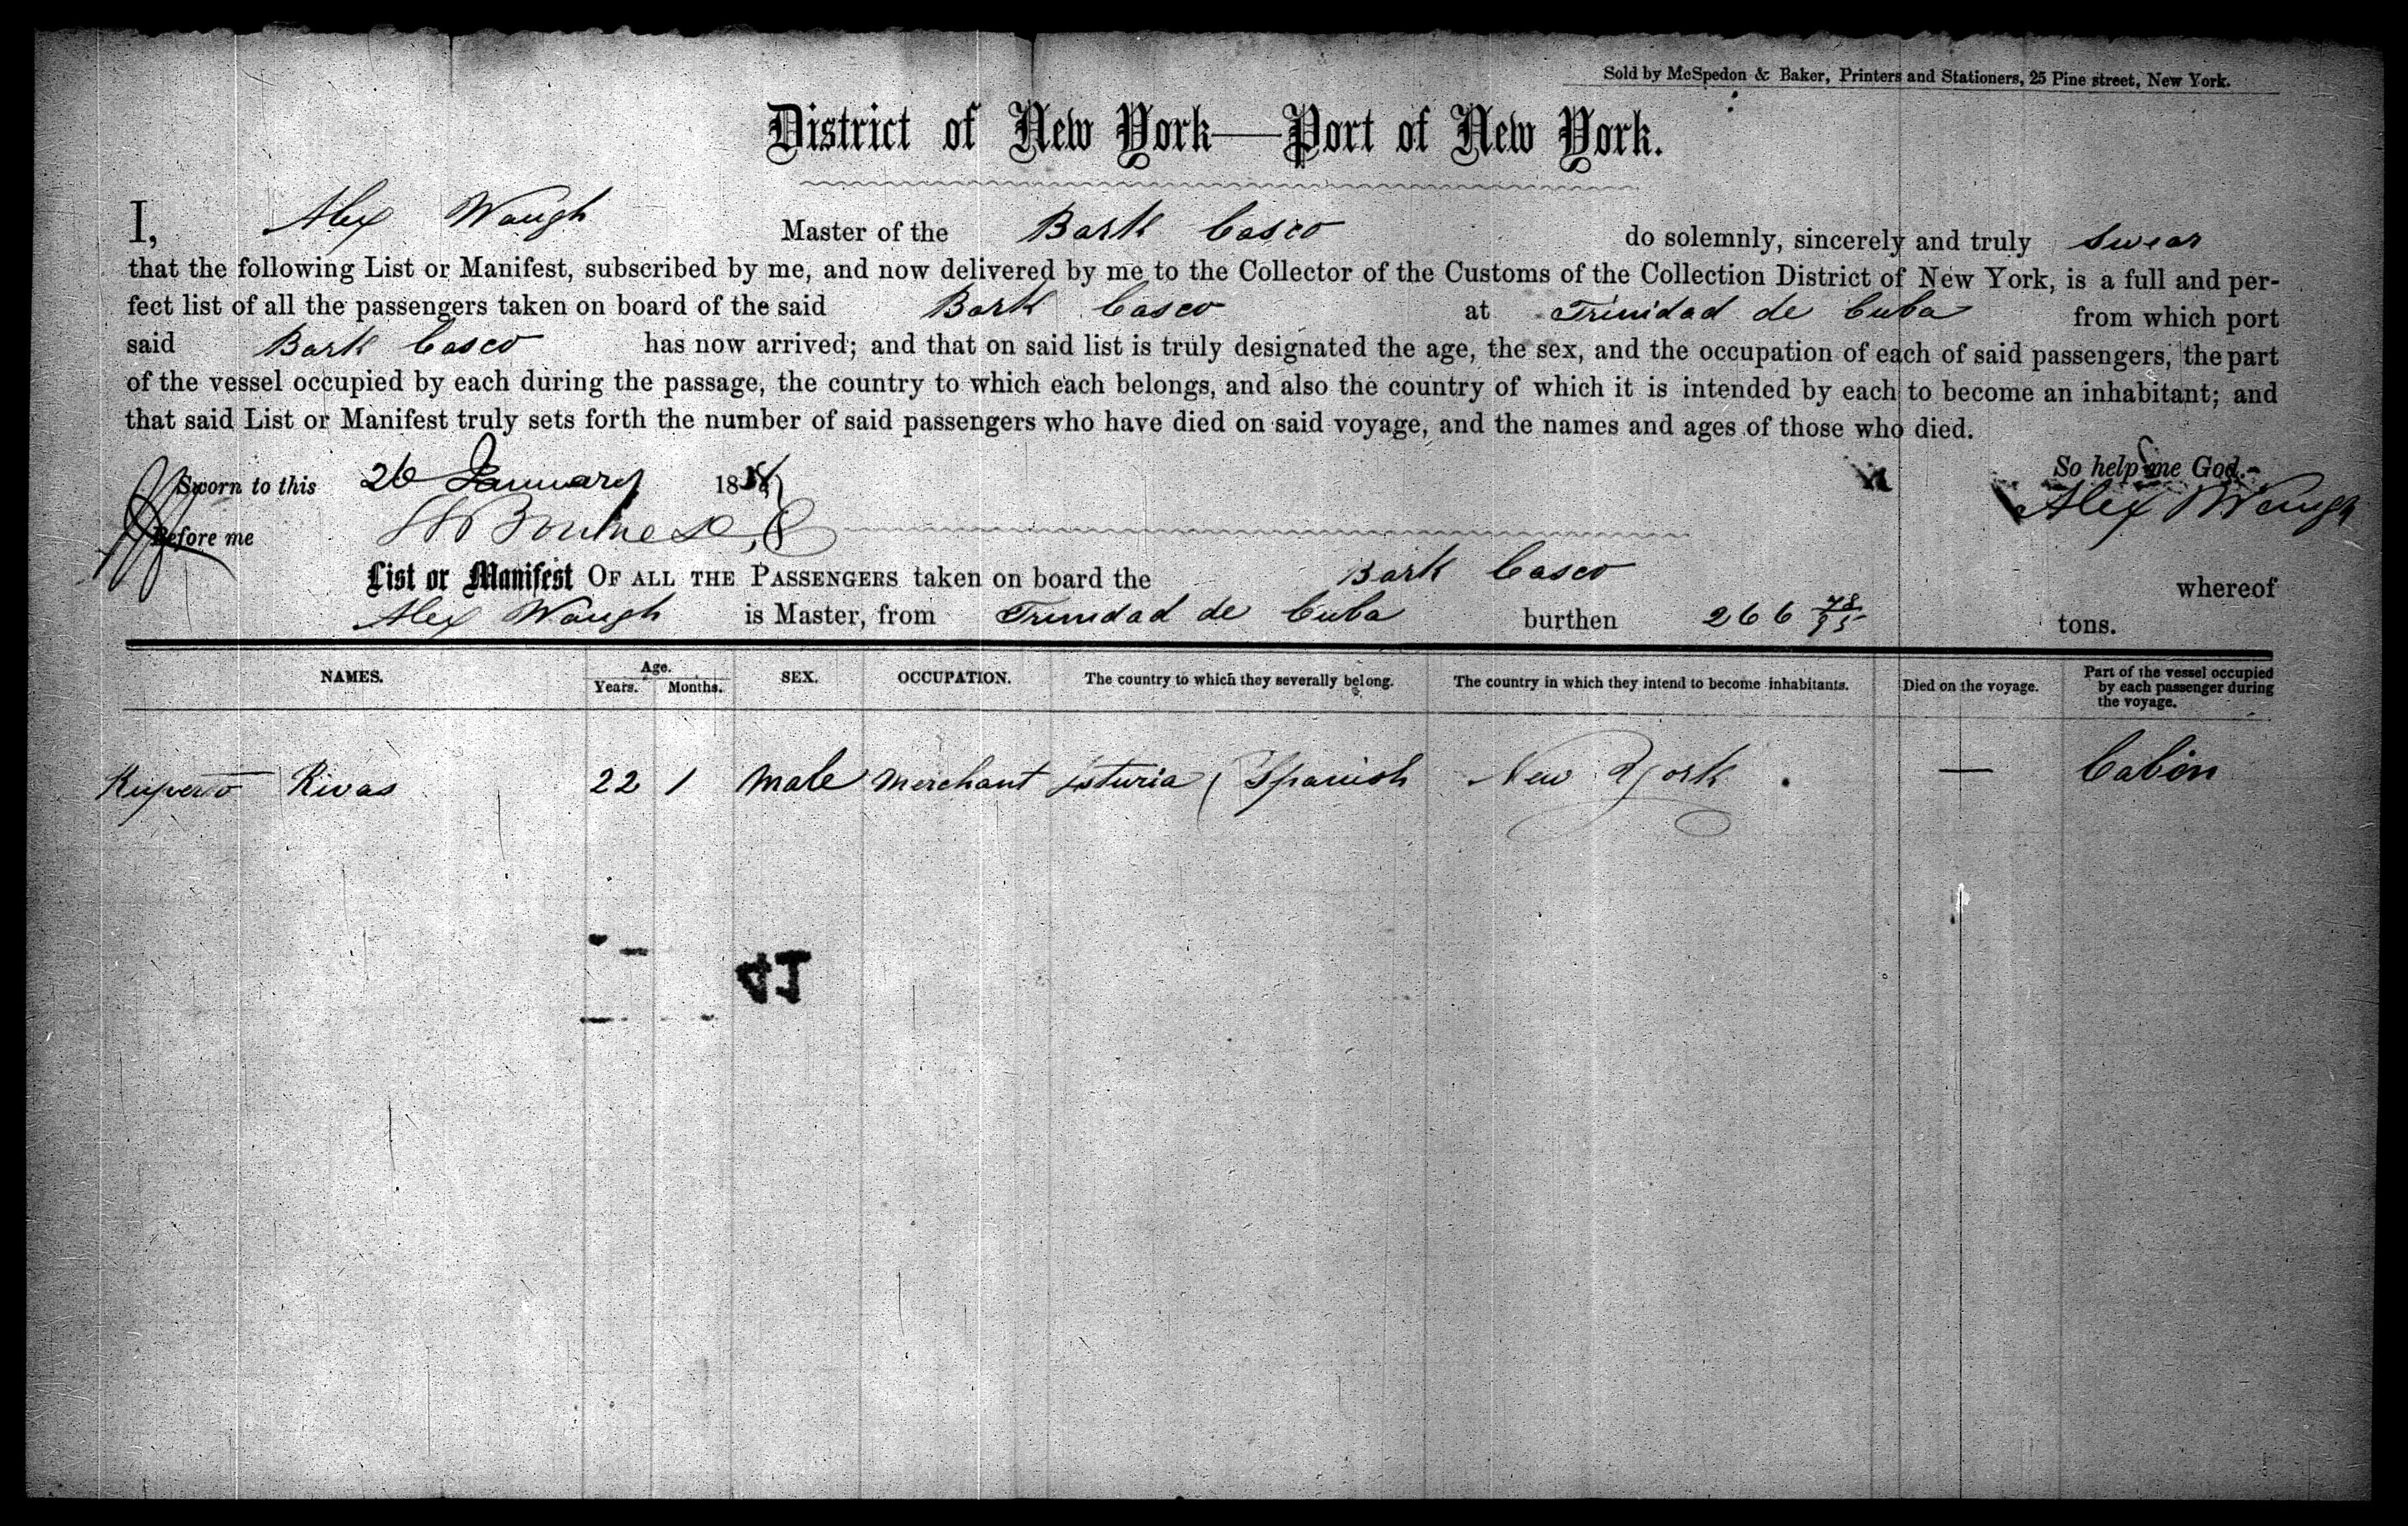 Sold by McSpedon & Baker, Printers and Stationers, 25 Pine street, New York.
District of New York—Port of New York.
I, Alex Waugh Master of the Bark Casco do solemnly, sincerely and truly swear
that the following List or Manifest, subscribed by me, and now delivered by me to the Collector of the Customs of the Collection District of New York, is a full and per-
fect list of all the passengers taken on board of the said Bark Casco at Trinidad de Cuba from which port
said Bark Casco has now arrived; and that on said list is truly designated the age, the sex, and the occupation of each of said passengers, the part
of the vessel occupied by each during the passage, the country to which each belongs, and also the country of which it is intended by each to become an inhabitant; and
that said List or Manifest truly sets forth the number of said passengers who have died on said voyage, and the names and ages of those who died.
So help me God.
Sworn to this 26 January 18
Alex Waugh
Before me
List or Manifest OF ALL THE PASSENGERS taken on board the Bark Casco whereof
Alex Waugh is Master, from Trinidad de Cuba burthen 266 78/95 tons.
NAMES. Age. Years. Months. SEX. OCCUPATION. The country to which they severally belong. The country in which they intend to become inhabitants. Died on the voyage. Part of the vessel occupied by each passenger during the voyage.
Ruperto Rivas 22 1 Male Merchant Asturia (Spanish New York — Cabin